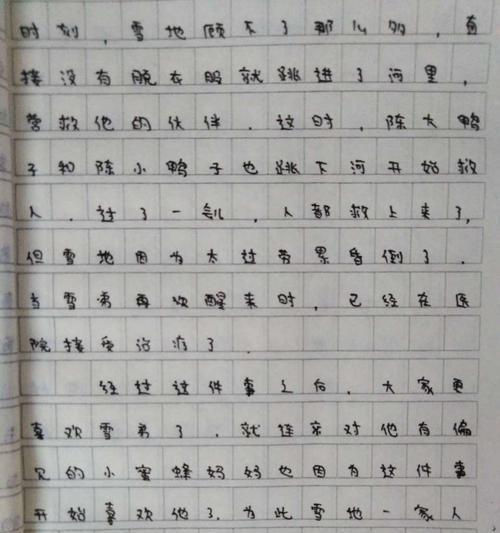 时刻，雪地顾不了那么多，直
接没有脱衣服就跳进了河里，
营救他的伙伴．这时，陈大鸭
子和陈小鸭子也跳下河开始救
人．过了一会儿，人都救上来了，
但雪地因为太过劳累昏倒了．
当雪弟再次醒来时，已经在医
院接受治疗了．
经过这件事之后．大家更
喜欢雪弟了．就连来对他有偏
见的小蜜蜂妈妈也因为这件事
开始喜欢他了．为此雪地一家人